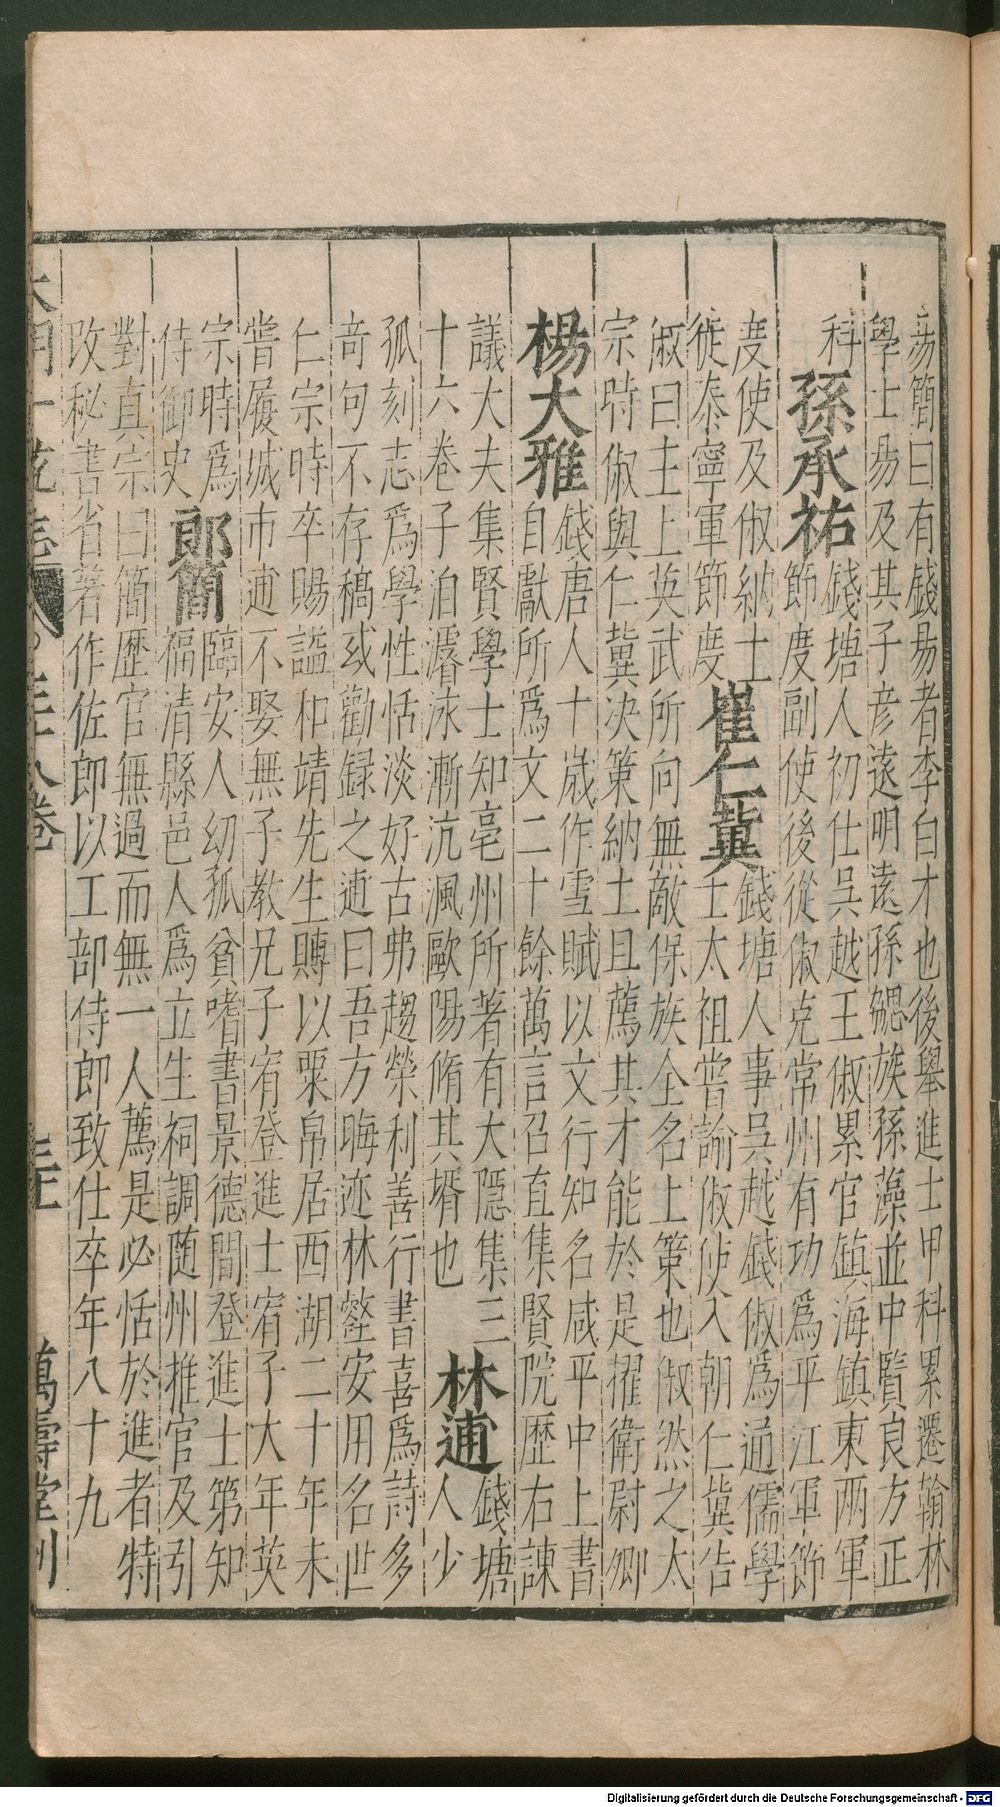 易簡曰有錢易者李白才也後舉進士甲科累遷翰林
學士易及其子彥遠明逺孫勰族孫藻並中賢良方正
科
孫承祐
錢塘人初仕吳越王俶累官鎮海鎮東兩軍
節度副使後從俶克常州有功為平江軍節
度使及俶納土
徙泰寧軍節度
崔仁冀
錢塘人事吳越錢俶為通儒學
士太祖嘗諭俶使入朝仁冀告
俶曰主上英武所向無敵保族全名上策也俶然之太
宗時俶與仁冀決策納土且薦其才能於是擢衛尉卿
楊大雅
錢唐人十歲作雪賦以文行知名咸平中上書
自獻所為文二十餘萬言召直集賢院歷右諫
議大夫集賢學士知亳州所著有大隱集三
十六卷子洎濬泳漸沆渢歐陽脩其壻也
林逋
錢塘
人少
孤刻志為學性恬淡好古弗趨榮利善行書喜為詩多
奇句不存稿或勸録之逋曰吾方晦迹林壑安用名世
仁宗時卒賜諡和靖先生賻以粟帛居西湖二十年未
嘗履城市逋不娶無子教兄子宥登進士宥子大年英
宗時為
侍御史
郎簡
臨安人幼孤貧嗜書景德間登進士第知
福清縣邑人為立生祠調随州推官及引
對真宗曰簡歷官無過而無一人薦是必恬於進者特
改秘書省著作佐郎以工部侍郎致仕卒年八十九
大明一統志 三十八卷 三十一 萬壽堂刊
Digitalisierung gefördert durch die Deutsche Forschungsgemeinschaft - DFG